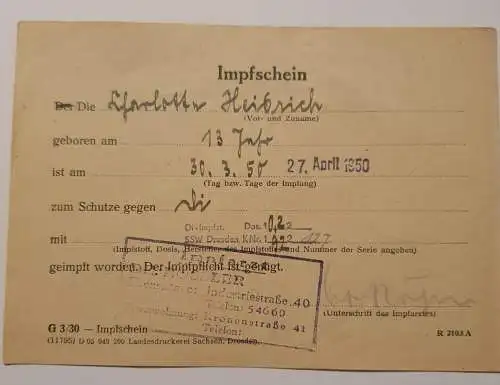 Impfschein
Der Die Charlotte Heidrich
(Vor- und Zuname)
geboren am 13 Jahr
ist am 30.3.50 27. April 1950
(Tag bzw. Tage der Impfung)
zum Schutze gegen Di
Di-Impfst. Dos. 0,2
mit SSW Dresden K.Nr. 127
(Impfstoff, Dosis, Hersteller des Impfstoffes und Nummer der Serie angeben)
geimpft worden. Der Impfpflicht ist genügt.
Impfarzt
Industriestraße 40
Telefon 54660
Kronenstraße 41
Telefon:
(Unterschrift des Impfarztes)
G 3/30 — Impfschein R 2103 A
(11795) D 05 949 190 Landesdruckerei Sachsen, Dresden.